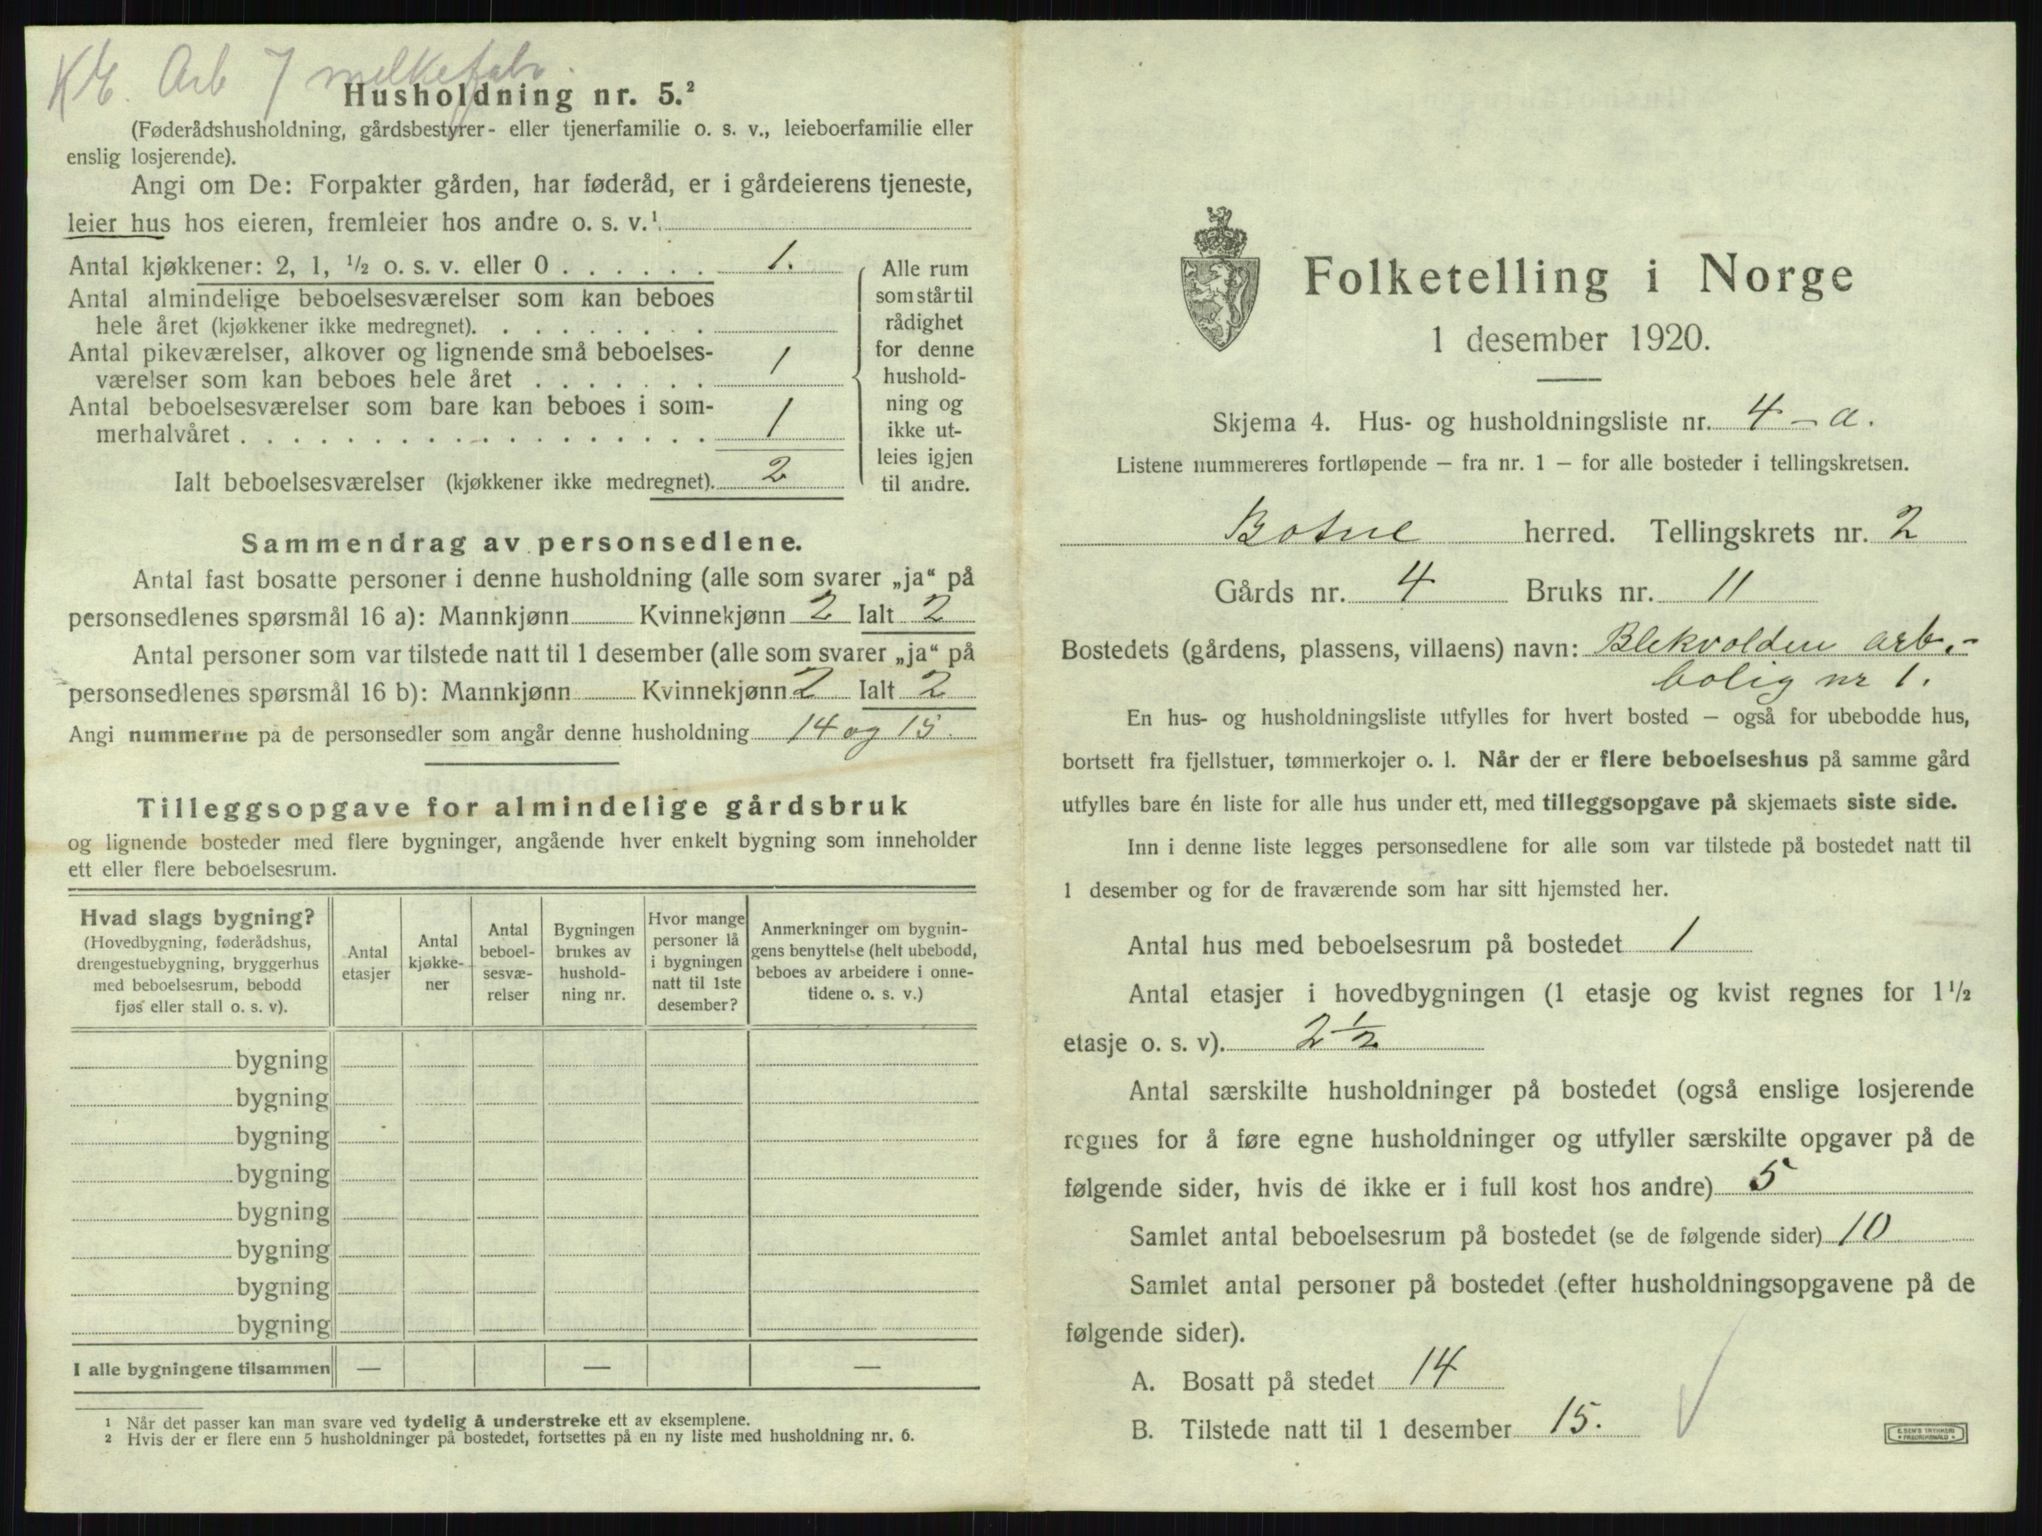 Arb 7 melkefabr.
Husholdning nr. 5.²
(Føderådshusholdning, gårdsbestyrer- eller tjenerfamilie o. s. v., leieboerfamilie eller
enslig losjerende).
Angi om De: Forpakter gården, har føderåd, er i gårdeierens tjeneste,
leier hus hos eieren, fremleier hos andre o. s. v.¹
Antal kjøkkener: 2, 1, ½ o. s. v. eller 0 . . . . . . 1.
Antal almindelige beboelsesværelser som kan beboes
hele året (kjøkkener ikke medregnet). . . . . . . . .
Antal pikeværelser, alkover og lignende små beboelses-
værelser som kan beboes hele året . . . . . . . 1
Antal beboelsesværelser som bare kan beboes i som-
merhalvåret . . . . . . . . . . . . . . . . . . 1
Ialt beboelsesværelser (kjøkkener ikke medregnet). 2
Alle rum
som står til
rådighet
for denne
hushold-
ning og
ikke ut-
leies igjen
til andre.
Sammendrag av personsedlene.
Antal fast bosatte personer i denne husholdning (alle som svarer „ja“ på
personsedlenes spørsmål 16 a): Mannkjønn Kvinnekjønn 2 Ialt 2
Antal personer som var tilstede natt til 1 desember (alle som svarer „ja“ på
personsedlenes spørsmål 16 b): Mannkjønn Kvinnekjønn 2 Ialt 2
Angi nummerne på de personsedler som angår denne husholdning 14 og 15.
Tilleggsopgave for almindelige gårdsbruk
og lignende bosteder med flere bygninger, angående hver enkelt bygning som inneholder
ett eller flere beboelsesrum.
Hvad slags bygning?
(Hovedbygning, føderådshus,
drengestuebygning, bryggerhus
med beboelsesrum, bebodd
fjøs eller stall o. s. v).
Antal
etasjer
Antal
kjøkke-
ner
Antal
beboel-
sesvæ-
relser
Bygningen
brukes av
hushold-
ning nr.
Hvor mange
personer lå
i bygningen
natt til 1ste
desember?
Anmerkninger om bygnin-
gens benyttelse (helt ubebodd,
beboes av arbeidere i onne-
tidene o. s. v.)
bygning
bygning
bygning
bygning
bygning
bygning
bygning
bygning
I alle bygningene tilsammen — — —
¹ Når det passer kan man svare ved tydelig å understreke ett av eksemplene.
² Hvis der er flere enn 5 husholdninger på bostedet, fortsettes på en ny liste med husholdning nr. 6.
Folketelling i Norge
1 desember 1920.
Skjema 4. Hus- og husholdningsliste nr. 4 - a.
Listene nummereres fortløpende — fra nr. 1 — for alle bosteder i tellingskretsen.
Botne herred. Tellingskrets nr. 2
Gårds nr. 4 Bruks nr. 11
Bostedets (gårdens, plassens, villaens) navn: Blekvolden arb.-
bolig nr 1.
En hus- og husholdningsliste utfylles for hvert bosted — også for ubebodde hus,
bortsett fra fjellstuer, tømmerkojer o. l. Når der er flere beboelseshus på samme gård
utfylles bare én liste for alle hus under ett, med tilleggsopgave på skjemaets siste side.
Inn i denne liste legges personsedlene for alle som var tilstede på bostedet natt til
1 desember og for de fraværende som har sitt hjemsted her.
Antal hus med beboelsesrum på bostedet 1
Antal etasjer i hovedbygningen (1 etasje og kvist regnes for 1½
etasje o. s. v). 2 ½
Antal særskilte husholdninger på bostedet (også enslige losjerende
regnes for å føre egne husholdninger og utfyller særskilte opgaver på de
følgende sider, hvis de ikke er i full kost hos andre) 5
Samlet antal beboelsesrum på bostedet (se de følgende sider) 10
Samlet antal personer på bostedet (efter husholdningsopgavene på de
følgende sider).
A. Bosatt på stedet 14
B. Tilstede natt til 1 desember 15.